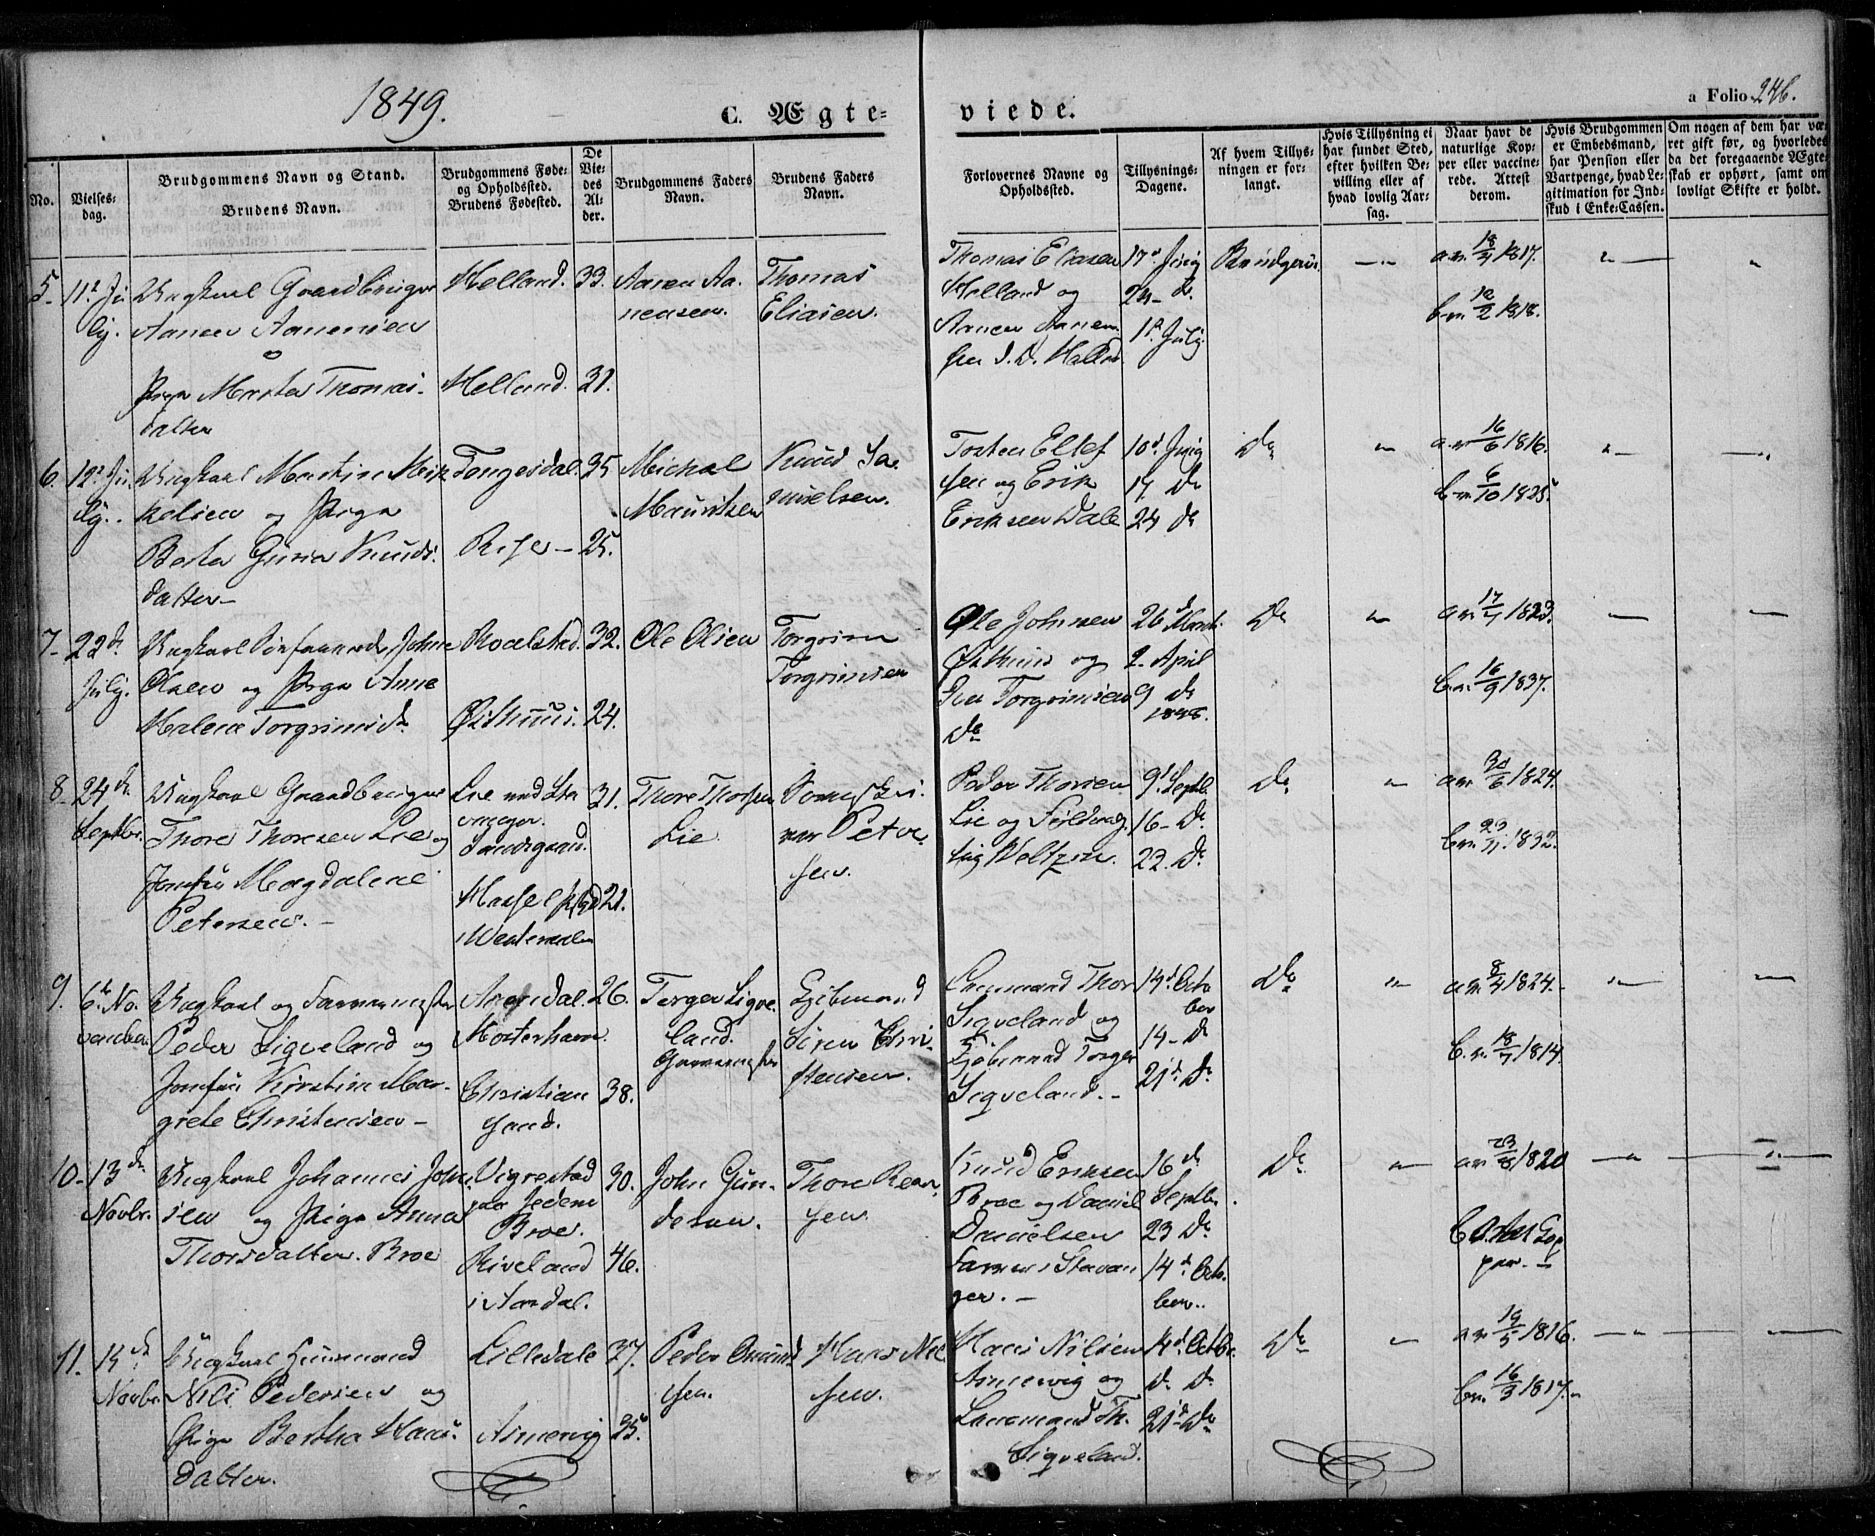 1849.
C. Ægte-viede.
a Folio 246.
No.
Vielses-
dag.
Brudgommens Navn og Stand.
Brudens Navn.
Brudgommens Føde-
og Opholdssted.
Brudens Fødested.
De
Vie-
des
Al-
der.
Brudgommens Faders
Navn.
Brudens Faders
Navn.
Forlovernes Navne og
Opholdssted.
Tillysnings-
Dagene.
Af hvem Tillys-
ningen er for-
langt.
Hvis Tillysning ei
har fundet Sted,
efter hvilken Be-
villing eller af
hvad lovlig Aar-
sag.
Naar havt de
naturlige Kop-
per eller vaccine-
rede. Attest
derom.
Hvis Brudgommen
er Embedsmand,
har Pension eller
Vartpenge, hvad Le-
gitimation for Ind-
skud i Enke-Cassen.
Om nogen af dem har væ-
ret gift før, og hvorledes
da det foregaaende Ægte-
skab er ophørt, samt om
lovligt Skifte er holdt.
5.
11te Ju-
ly.
Ungkarl Gaardbruger
Aanen Aanensen
Pige Marta Thomas-
datter
Helland.
Helland.
33.
31.
Aanen Aa-
nensen.
Thomas
Eliasen.
Thomas Eliasen
Helland og
Aanen Aanen-
sen
17d Juny
24- d.
1st July.
a.v. 18/4 1817.
b.v. 12/2 1818.
6.
12te Ju-
ly.
Ungkarl Martin Mik-
kelsen og Pige
Berta Guria Knuds-
datter
Tengesdal.
35
25.
Michal
Mauritsen
Knud Sa-
muelsen.
Torsten Ellef-
sen og Erik
Eriksen Dale
10d Juny
17 D
24 D
Do
a.v 16/6 1816.
b.v. 6/10 1825.
7.
22d
July.
Ungkarl John
Olsen og Pige Anne
Malene Torgrimsd.
Roalstad.
Østhuus.
32.
24.
Ole Olsen
Torgrim
Torgrimsen
Ole Johnsen
Østhuus og
Torgrimsen
Do
26d Marts
2. April
9 D
1848.
Do
a.v. 17/7 1823.
b.v. 16/9 1837.
8.
24de
Septbr.
Ungkarl Gaardbruger
Thore Thorsen Lie og
Jomfru Magdalene
Petersen.
Lie
31.
21.
Thore Thorsen
Lie.
Peter-
sen.
Peder Thorsen
Lie og
Weltzin.
9d Septb.
16- D.
23. D.
Do
a.v. 30/6 1824.
b.v. 23/11 1832.
9.
6te No-
vember.
Ungkarl og Farvermester
Peder Sigveland og
Jomfru Kirstine Mar-
grete Christensen
Arendal.
Christian-
sand.
26.
38.
Torger Sigve-
land.
Garvermester
Kjøbmand
Søren Chri-
stensen.
Lensmand Thor
Sigveland og
Kjøbmand Torger
Sigveland.
14d Octo-
ber
14- D
21d D.
Do
a.v. 8/7 1824.
b.v. 18/7 1814.
10.
13de
Novbr.
Ungkarl Johannes John-
sen og Pige Anna
Thorsdatter Broe
Vigrestad
paa Jedern
Broe.
Riveland
i Aardal.
30.
46.
John Gun-
dersen.
Thore Rear-
sen.
Knud Eriksen
Broe og Daniel
Danielsen
Farver i Stavan-
ger.
16d
Septbr.
23 D
14d Octo-
ber.
Do
a.v 23/8 1820
11.
14de
Novbr.
Ungkarl Huusmand
Nils Pedersen og
Pige Bertha Hans-
datter.
Lilledale
Asmervig
37.
35.
Peder Omund-
sen.
Hans Niel-
sen.
Hans Nilsen
Asmervig og
Lensmand Th.
Sigveland.
14d Octbr.
D. D.
21d D
Do
a.v. 19/5 1816.
b.v. 16/3 1817.